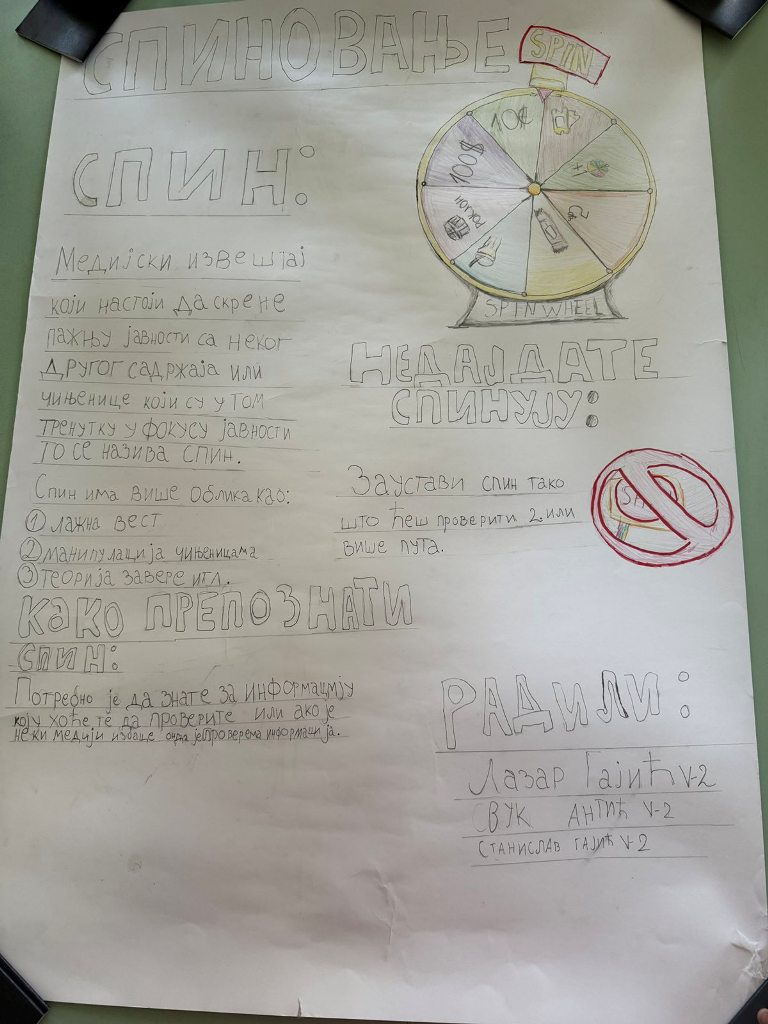 СПИНОВАЊЕ
SPIN
10$
100$
ПОКЛОН
SPIN WHEEL
СПИН:
Медијски извештај
који настоји да скрене
пажњу јавности са неког
другог садржаја или
чињенице који су у том
тренутку у фокусу јавности
то се назива спин.
Спин има више облика као:
1 лажна вест
2 манипулација чињеницама
3 теорија завере итд.
НЕДАЈ ДА ТЕ
СПИНУЈУ:
Заустави спин тако
што ћеш проверити 2 или
више пута.
КАКО ПРЕПОЗНАТИ
СПИН:
Потребно је да знате за информацмју
коју хоће те да проверите или ако је
неки медији избаце онда је проверема информација.
РАДИЛИ:
Лазар Гајић V-2
ВУК АНТИЋ V-2
СТАНИСЛАВ ГАЈИЋ V-2